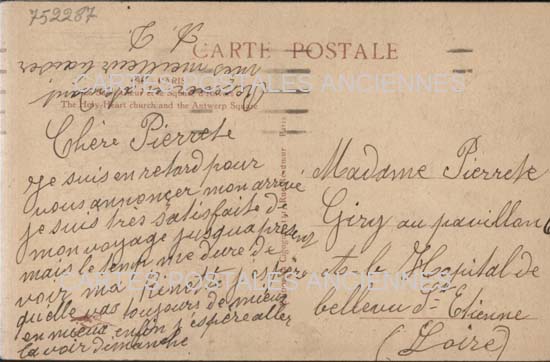 752287
CARTE POSTALE
PARIS
The Holy-Heart church and the Antwerp Square
CARTES POSTALES ANCIENNES
Chère Pierrete
Je suis en retard pour
vous announçer mon arrivé
je suis très satisfaite de
mon voyage jusqua present
mais le temp me dure de
voir ma j'espère
quelle vas toujours de mieux
en mieux enfin j'espère aller
la voir dimanche
mes meilleur baiser
Madame Pierrete
Giry au pavillon 6
Hopital de
bellevu St Etienne
(Loire)
CARTES POSTALES ANCIENNES